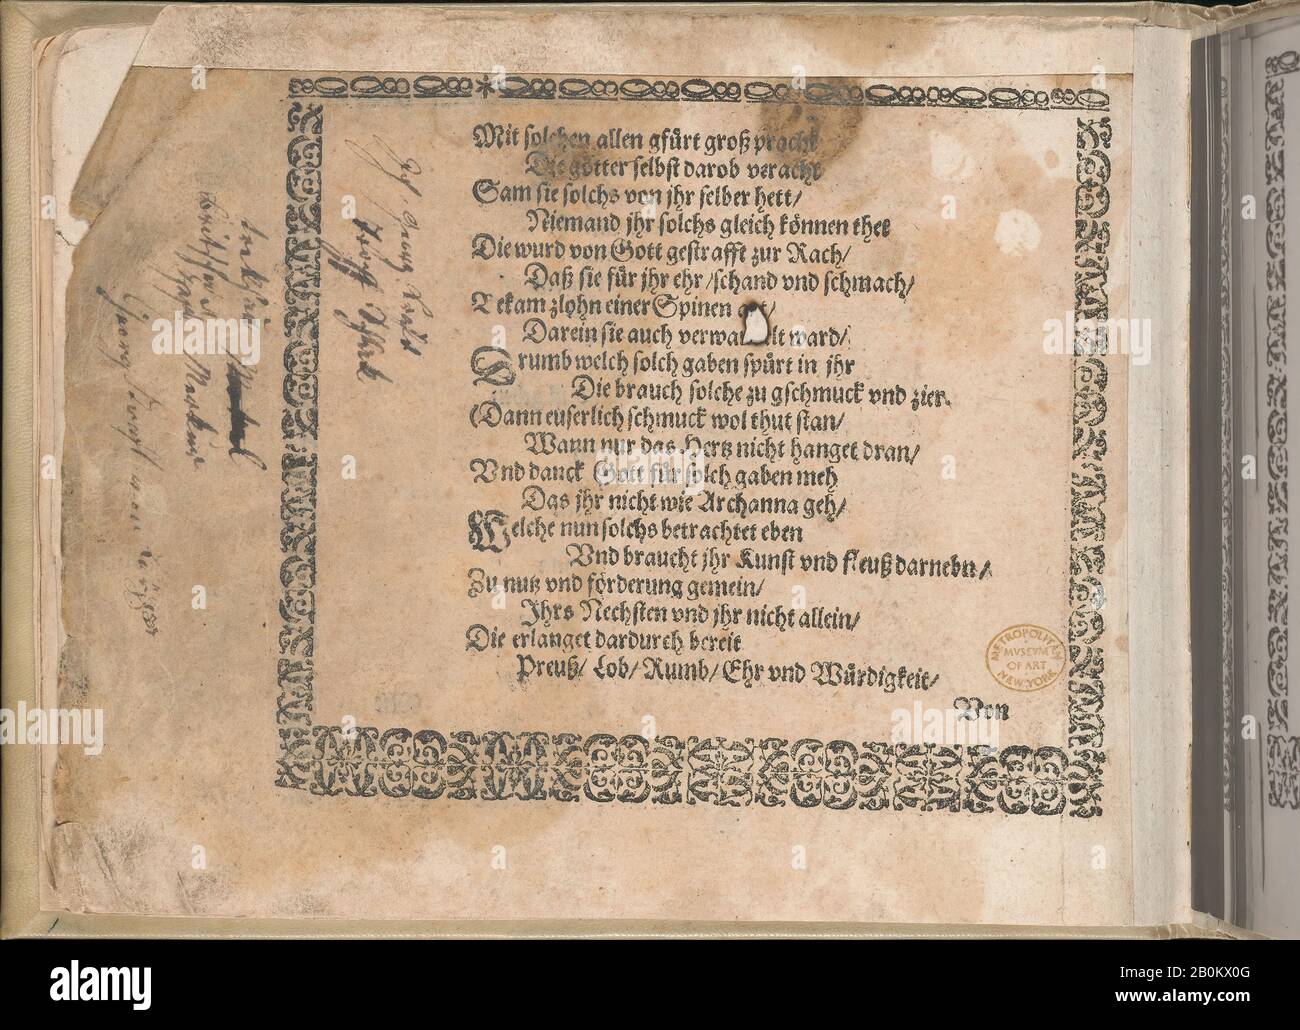 Mit solchen allen gfürt groß pracht
Die götter selbst darob veracht
Sam sie solchs von jhr selber hett/
Niemand jhr solchs gleich können thet
Die wurd von Gott gestrafft zur Rach/
Daß sie für jhr ehr/schand vnd schmach/
Bekam zlohn einer Spinen art/
Darein sie auch verwandelt ward/
Drumb welch solch gaben spürt in jhr
Die brauch solche zu gschmuck vnd zier.
(Dann euserlich schmuck wol thut stan/
Wann nur das Hertz nicht hanget dran/
Vnd danck Gott für solch gaben meh
Das jhr nicht wie Archanna geh/
Welche nun solchs betrachtet eben
Vnd braucht jhr Kunst vnd fleuß darnebn/
Zu nutz vnd förderung gemein/
Ihrs Nechsten vnd jhr nicht allein/
Die erlanget dardurch bereit
Preuß/ Lob/ Rumb/ Ehr vnd Würdigkeit/
Von
METROPOLITAN
MVSEVM
OF ART
NEW YORK
alamy
Image ID: 2B0KX0G
www.alamy.com